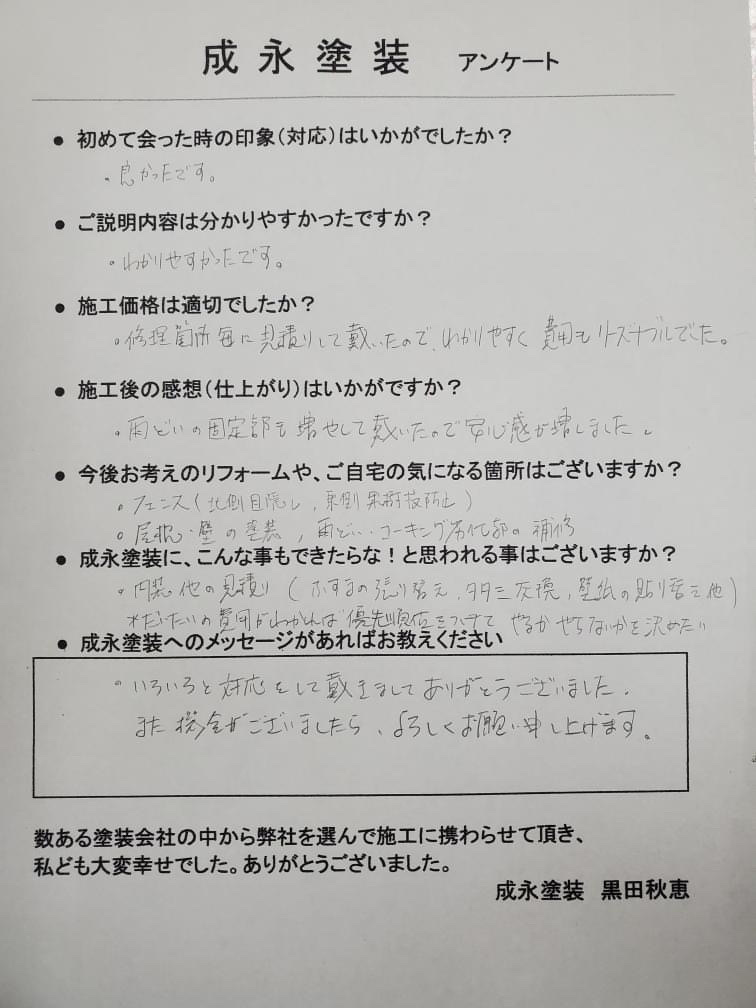 成永塗装 アンケート
● 初めて会った時の印象(対応)はいかがでしたか？
・良かったです。
● ご説明内容は分かりやすかったですか？
・わかりやすかったです。
● 施工価格は適切でしたか？
・修理箇所毎に見積りして戴いたので、わかりやすく費用もリーズナブルでした。
● 施工後の感想(仕上がり)はいかがですか？
・雨どいの固定部も増やして戴いたので安心感が増しました。
● 今後お考えのリフォームや、ご自宅の気になる箇所はございますか？
・フェンス(北側目隠し、東側果樹枝防止)
・屋根・壁の塗装、雨どい・コーキング劣化部の補修
● 成永塗装に、こんな事もできたらな！と思われる事はございますか？
・内装他の見積り(ふすまの張り替え、タタミ交換、壁紙の貼り替え他)
＊だいたいの費用がわかれば優先順位をつけて やるかやらないかを決めたい
● 成永塗装へのメッセージがあればお教えください
・いろいろと対応をして戴きましてありがとうございました。
また機会がございましたら、よろしくお願い申し上げます。
数ある塗装会社の中から弊社を選んで施工に携わらせて頂き、
私ども大変幸せでした。ありがとうございました。
成永塗装 黒田秋恵